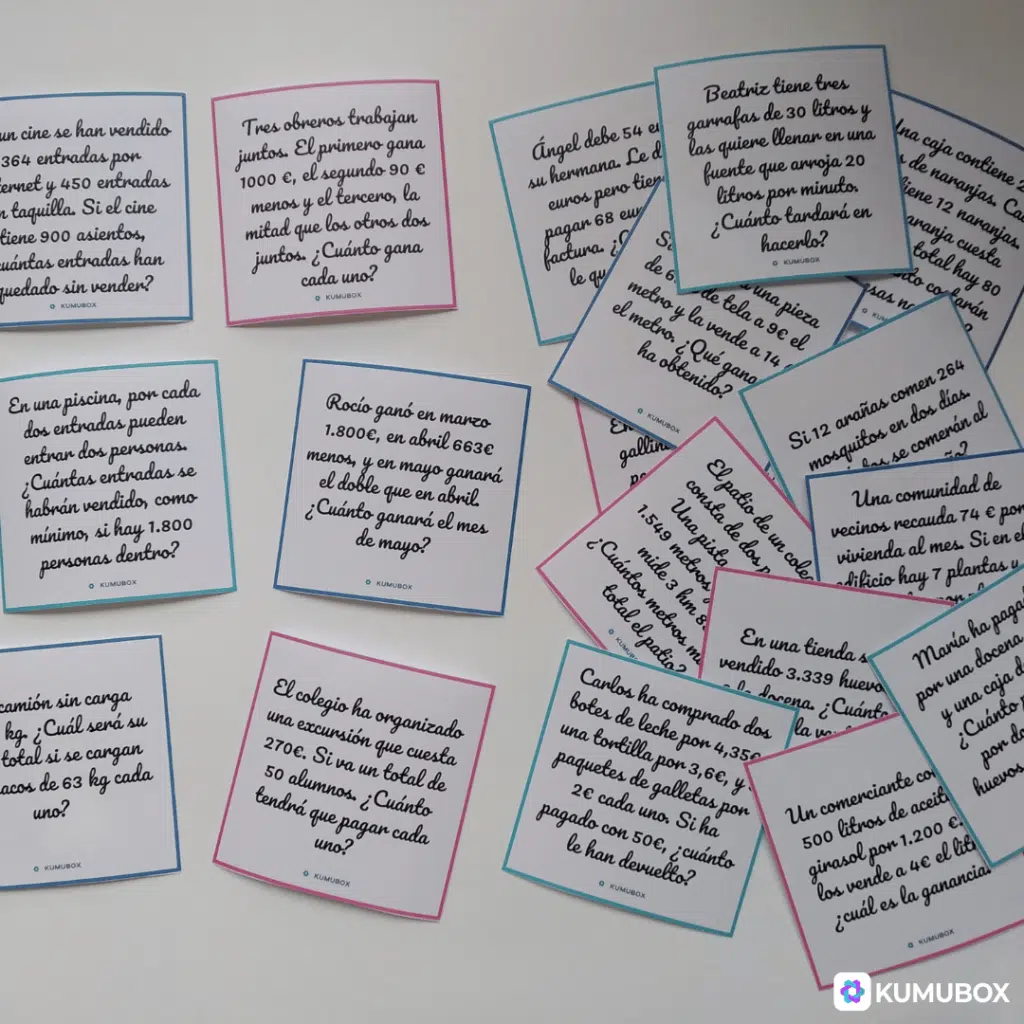 un cine se han vendido
364 entradas por
ternet y 450 entradas
n taquilla. Si el cine
tiene 900 asientos,
uántas entradas han
quedado sin vender?
KUMUBOX
Tres obreros trabajan
juntos. El primero gana
1000 €, el segundo 90 €
menos y el tercero, la
mitad que los otros dos
juntos. ¿Cuánto gana
cada uno?
KUMUBOX
Ángel debe 54 eu
su hermana. Le d
euros pero tien
pagar 68 eur
factura. ¿C
le qu
Beatriz tiene tres
garrafas de 30 litros y
las quiere llenar en una
fuente que arroja 20
litros por minuto.
¿Cuánto tardará en
hacerlo?
KUMUBOX
na caja contiene 2
de naranjas. Ca
iene 12 naranjas.
aranja cuesta
total hay 80
to co
arán
sas na
KUMU
Si
una pieza
de 6
de tela a 9€ el
metro y la vende a 14 €
el metro. ¿Qué gana
ha obtenido?
KUMUBOX
En una piscina, por cada
dos entradas pueden
entrar dos personas.
¿Cuántas entradas se
habrán vendido, como
mínimo, si hay 1.800
personas dentro?
KUMUBOX
Rocío ganó en marzo
1.800€, en abril 663€
menos, y en mayo ganará
el doble que en abril.
¿Cuánto ganará el mes
de mayo?
KUMUBOX
En
gallin
po
Si 12 arañas comen 264
mosquitos en dos días.
se comerán al
El patio de un coleg
consta de dos p
Una pista
1.549 metros y
mide 3 hm 8
¿Cuántos metros m
total el patio?
KUMUB
Una comunidad de
vecinos recauda 74 € por
vivienda al mes. Si en el
edificio hay 7 plantas y
En una tienda s
vendido 3.339 huevo
la docena. ¿Cuánt
la ve
María ha pagad
por una docena
y una caja d
¿Cuánto
por do
huevos
camión sin carga
kg. ¿Cuál será su
total si se cargan
acos de 63 kg cada
uno?
KUMUBOX
El colegio ha organizado
una excursión que cuesta
270€. Si va un total de
50 alumnos. ¿Cuánto
tendrá que pagar cada
uno?
KUMUBOX
Carlos ha comprado dos
botes de leche por 4,35€
una tortilla por 3,6€, y
paquetes de galletas por
2€ cada uno. Si ha
pagado con 50€, ¿cuánto
le han devuelto?
KUMUBOX
Un comerciante co
500 litros de aceit
girasol por 1.200 €.
los vende a 4€ el lit
¿cuál es la ganancia
KUMUBOX
KUMUBOX